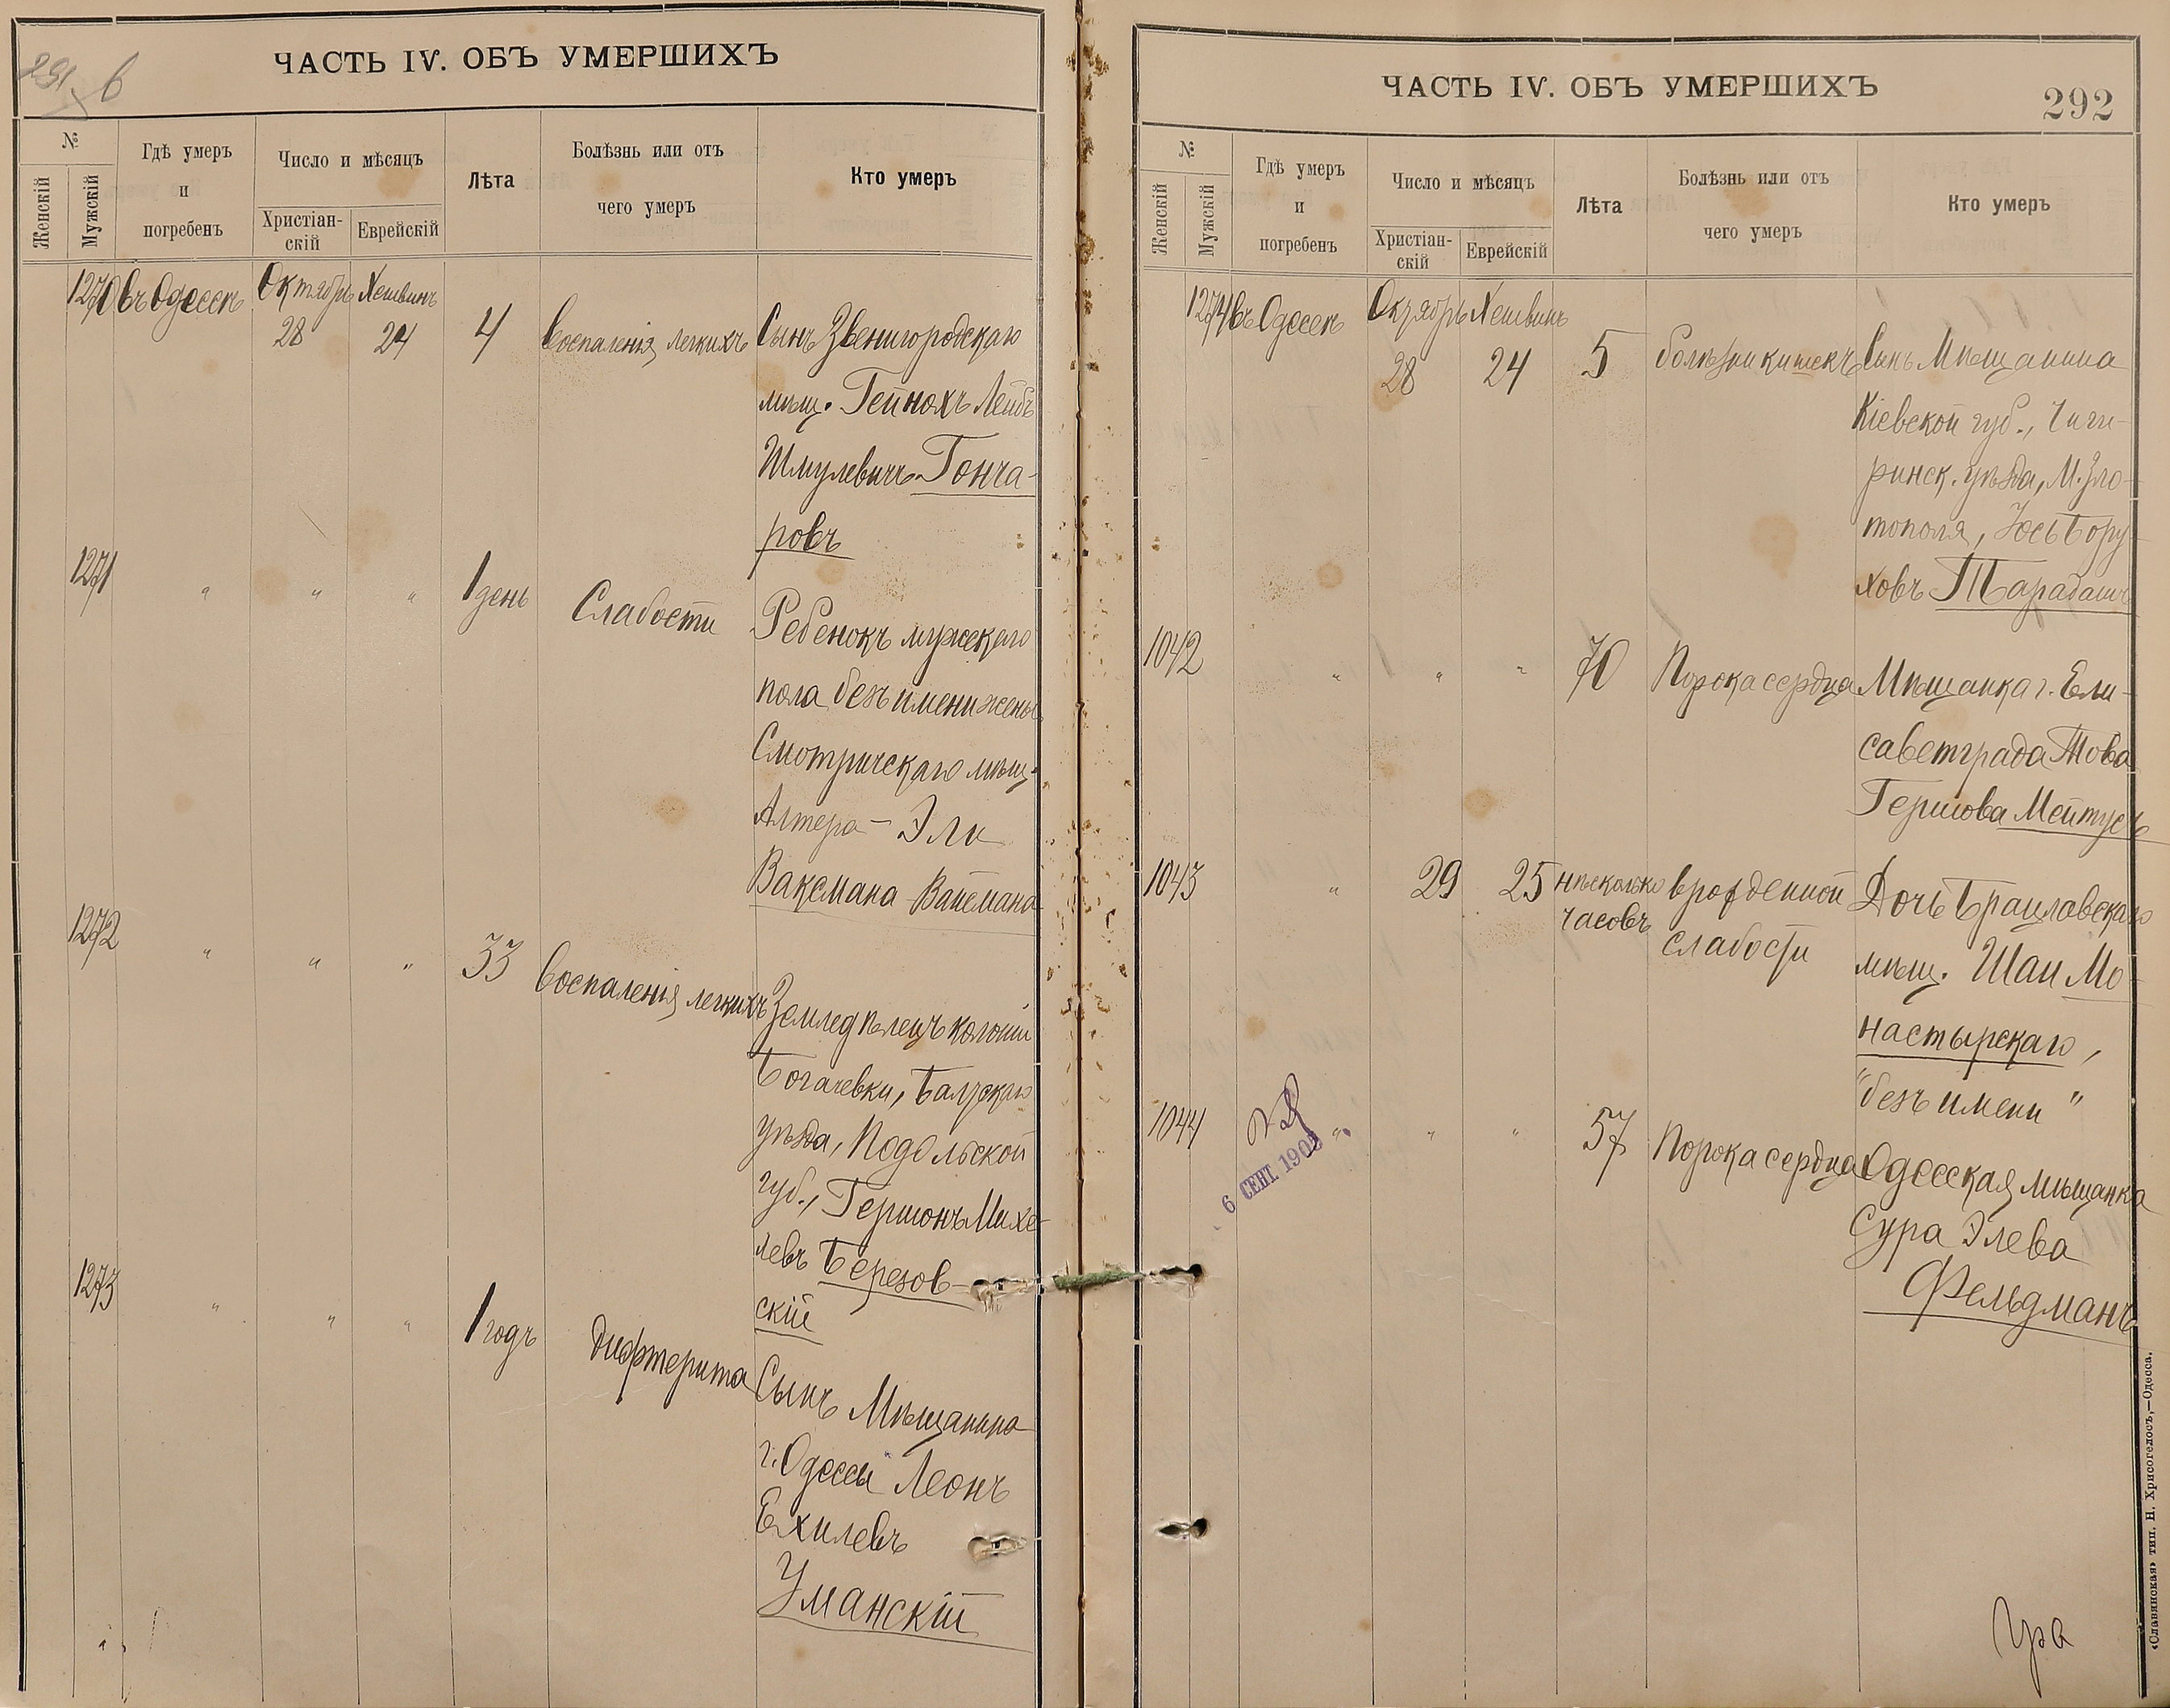 ЧАСТЬ IV. ОБЪ УМЕРШИХЪ
№
Женскій
Мужскій
Гдѣ умеръ
и
погребенъ
Число и мѣсяцъ
Христіан-
скій
Еврейскій
Лѣта
Болѣзнь или отъ
чего умеръ
Кто умеръ
1270 въ Одессѣ Октябрь Хешвинъ
28 24 4 воспаленія легкихъ Сынъ Звенигородскаго
мѣщ. Гейнохъ Лейбъ
Шмулевичъ Гонча-
ровъ
1271 " " " 1 день Слабости Ребенокъ мужскаго
пола безъ имени жены
Смотричскаго мѣщ.
Алтера - Эли
Ваксмана Вайсмана
1272 " " " 33 воспаленія легкихъ Земледѣлецъ колоніи
Богачевки, Балтскаго
уѣзда, Подольской
губ., Гершонъ Михе-
левъ Березов-
скій
1273 " " " 1 годъ дифтерита Сынъ Мѣщанина
г. Одессы Леонъ
Ехилевъ
Уманскій
ЧАСТЬ IV. ОБЪ УМЕРШИХЪ
292
№
Женскій
Мужскій
Гдѣ умеръ
и
погребенъ
Число и мѣсяцъ
Христіан-
скій
Еврейскій
Лѣта
Болѣзнь или отъ
чего умеръ
Кто умеръ
1274 въ Одессѣ Октябрь Хешвинъ
28 24 5 болѣзни кишекъ Сынъ Мѣщанина
Кіевской губ., Чиги-
ринск. уѣзда, М. Зло-
тополя, Юсь Бору-
ховъ Тарабанъ
1042 " " " 70 Порока сердца Мѣщанка г. Ели-
саветграда Това
Гершова Мейтусъ
1043 " 29 25 нѣсколько часовъ врожденной слабости Дочь Брацлавскаго
мѣщ. Шаи Мо-
настырскаго,
"безъ имени"
1044 " " " 57 Порока сердца Одесская мѣщанка
Сура Элева
Фельдманъ
6 СЕНТ. 190
«Славянская» тип. Н. Хрисогелосъ,—Одесса.